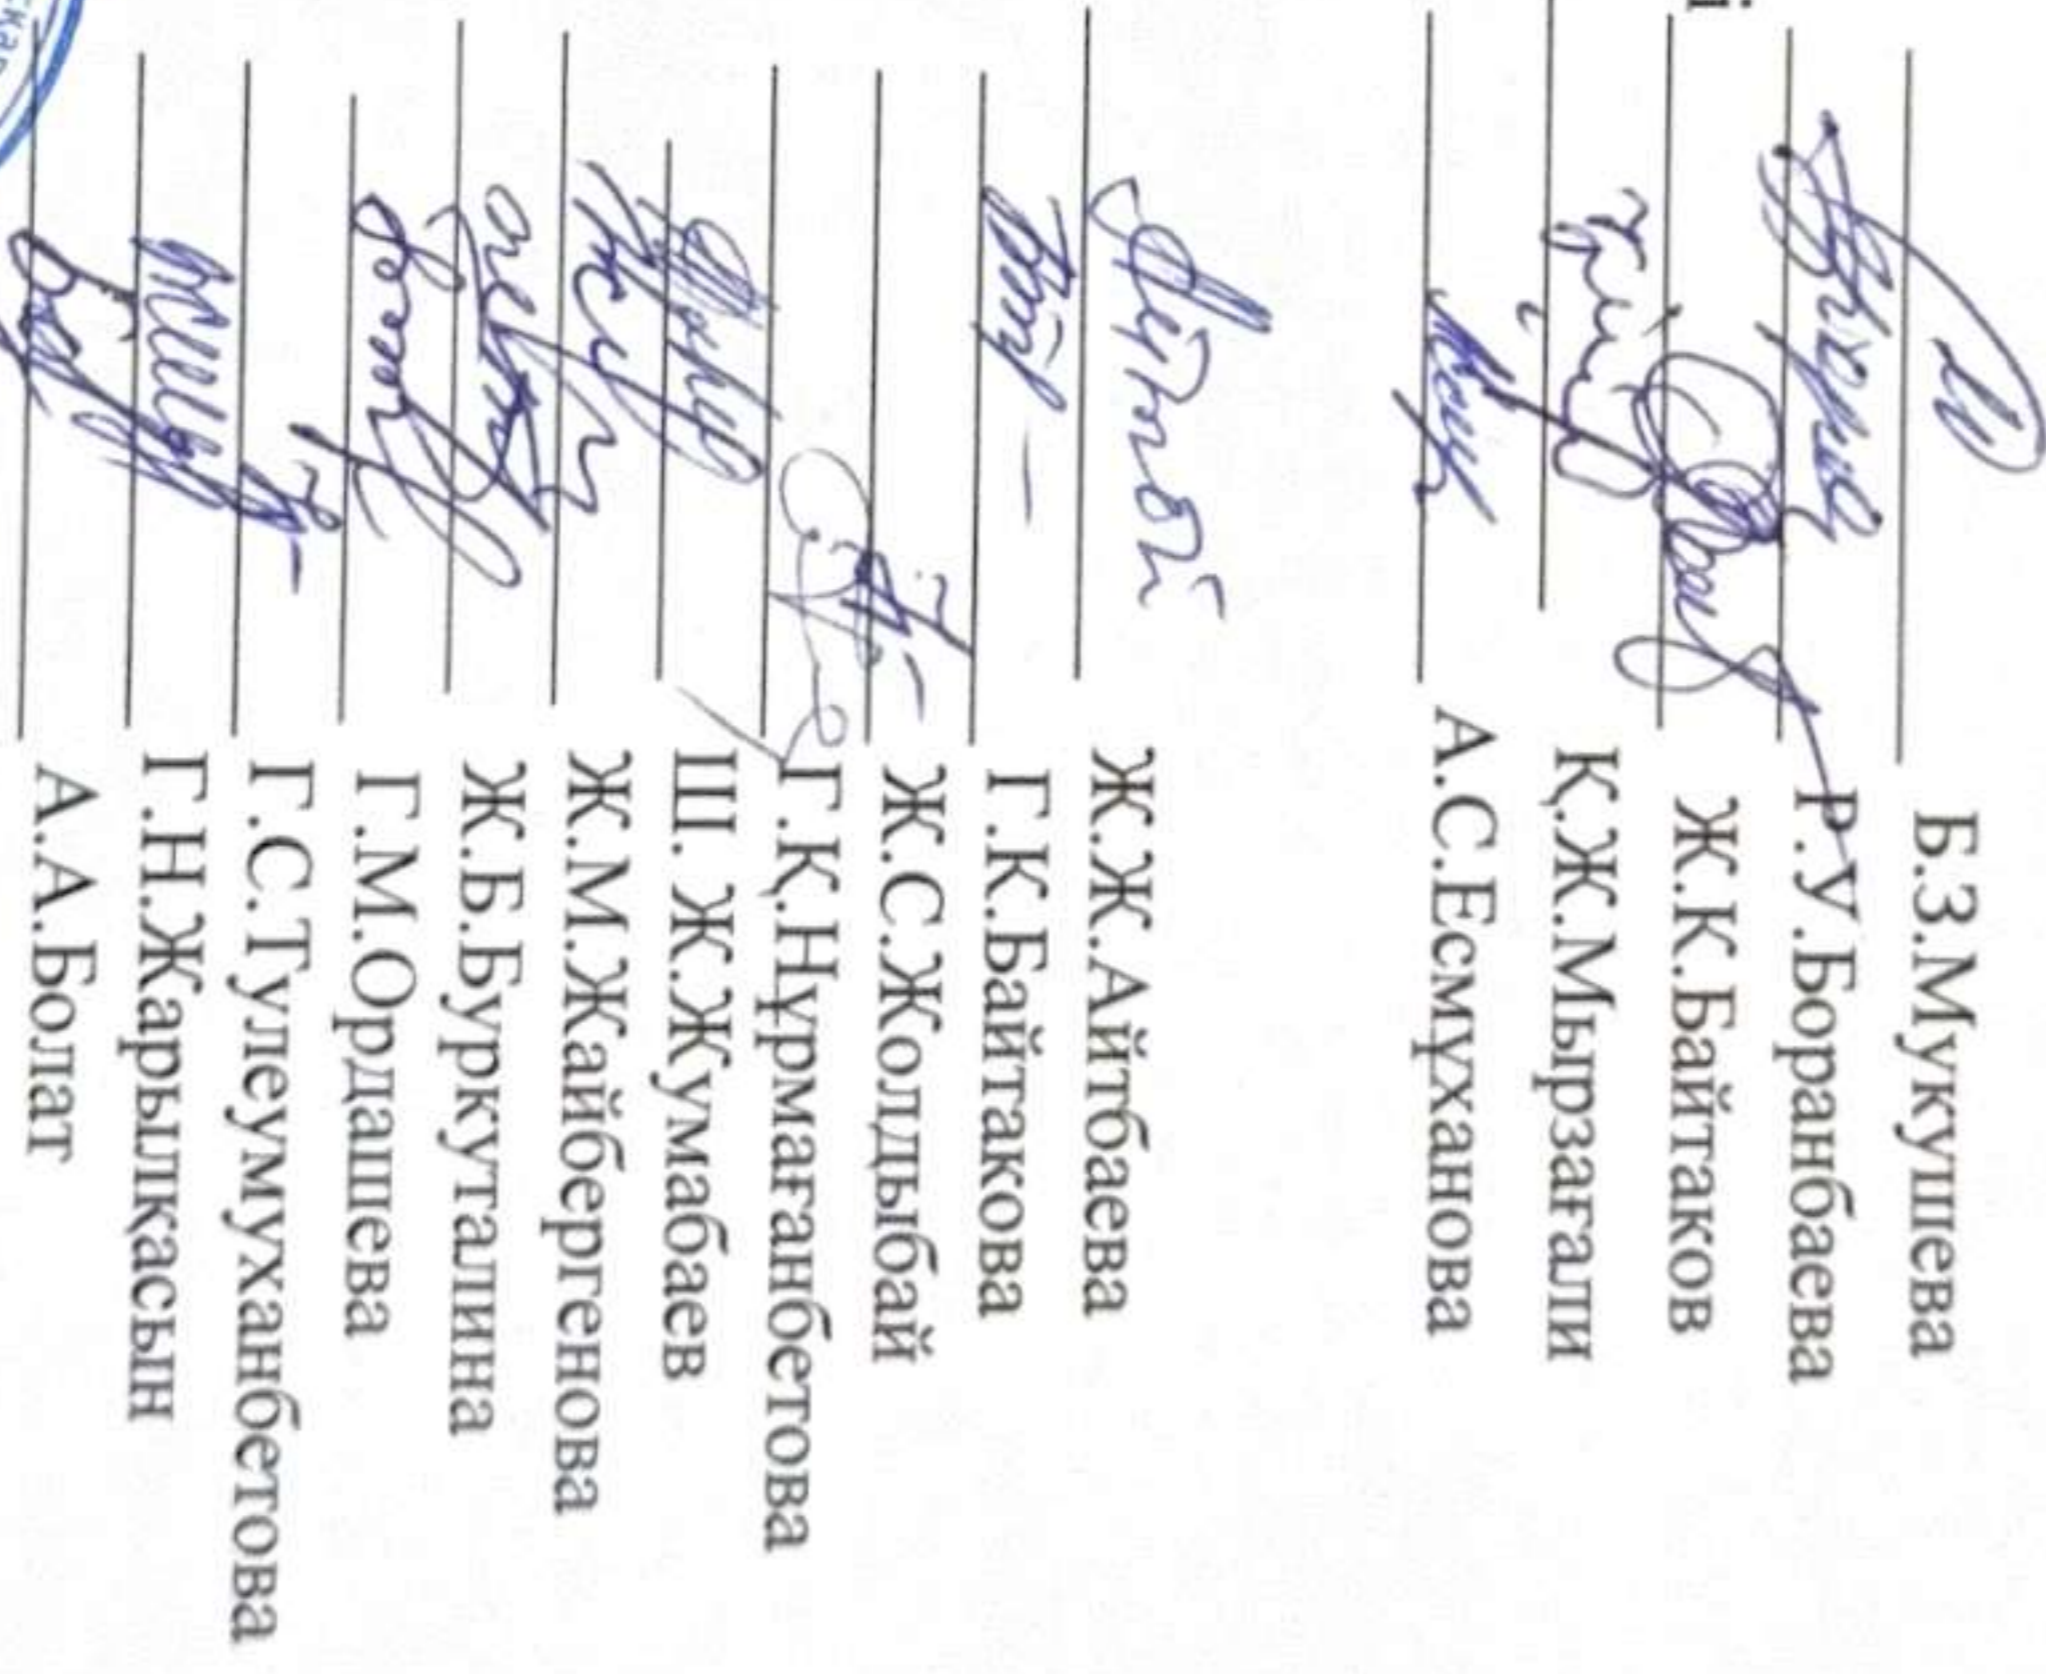 Б.З.Мукушева
Р.У.Боранбаева
Ж.К.Байтаков
Қ.Ж.Мырзағали
А.С.Есмұханова
Ж.Ж.Айтбаева
Г.К.Байтакова
Ж.С.Жолдыбай
Г.Қ.Нұрмағанбетова
Ш. Ж.Жумабаев
Ж.М.Жайбергенова
Ж.Б.Буркуталина
Г.М.Ордашева
Г.С.Тулеумуханбетова
Г.Н.Жарылқасын
А.А.Болат